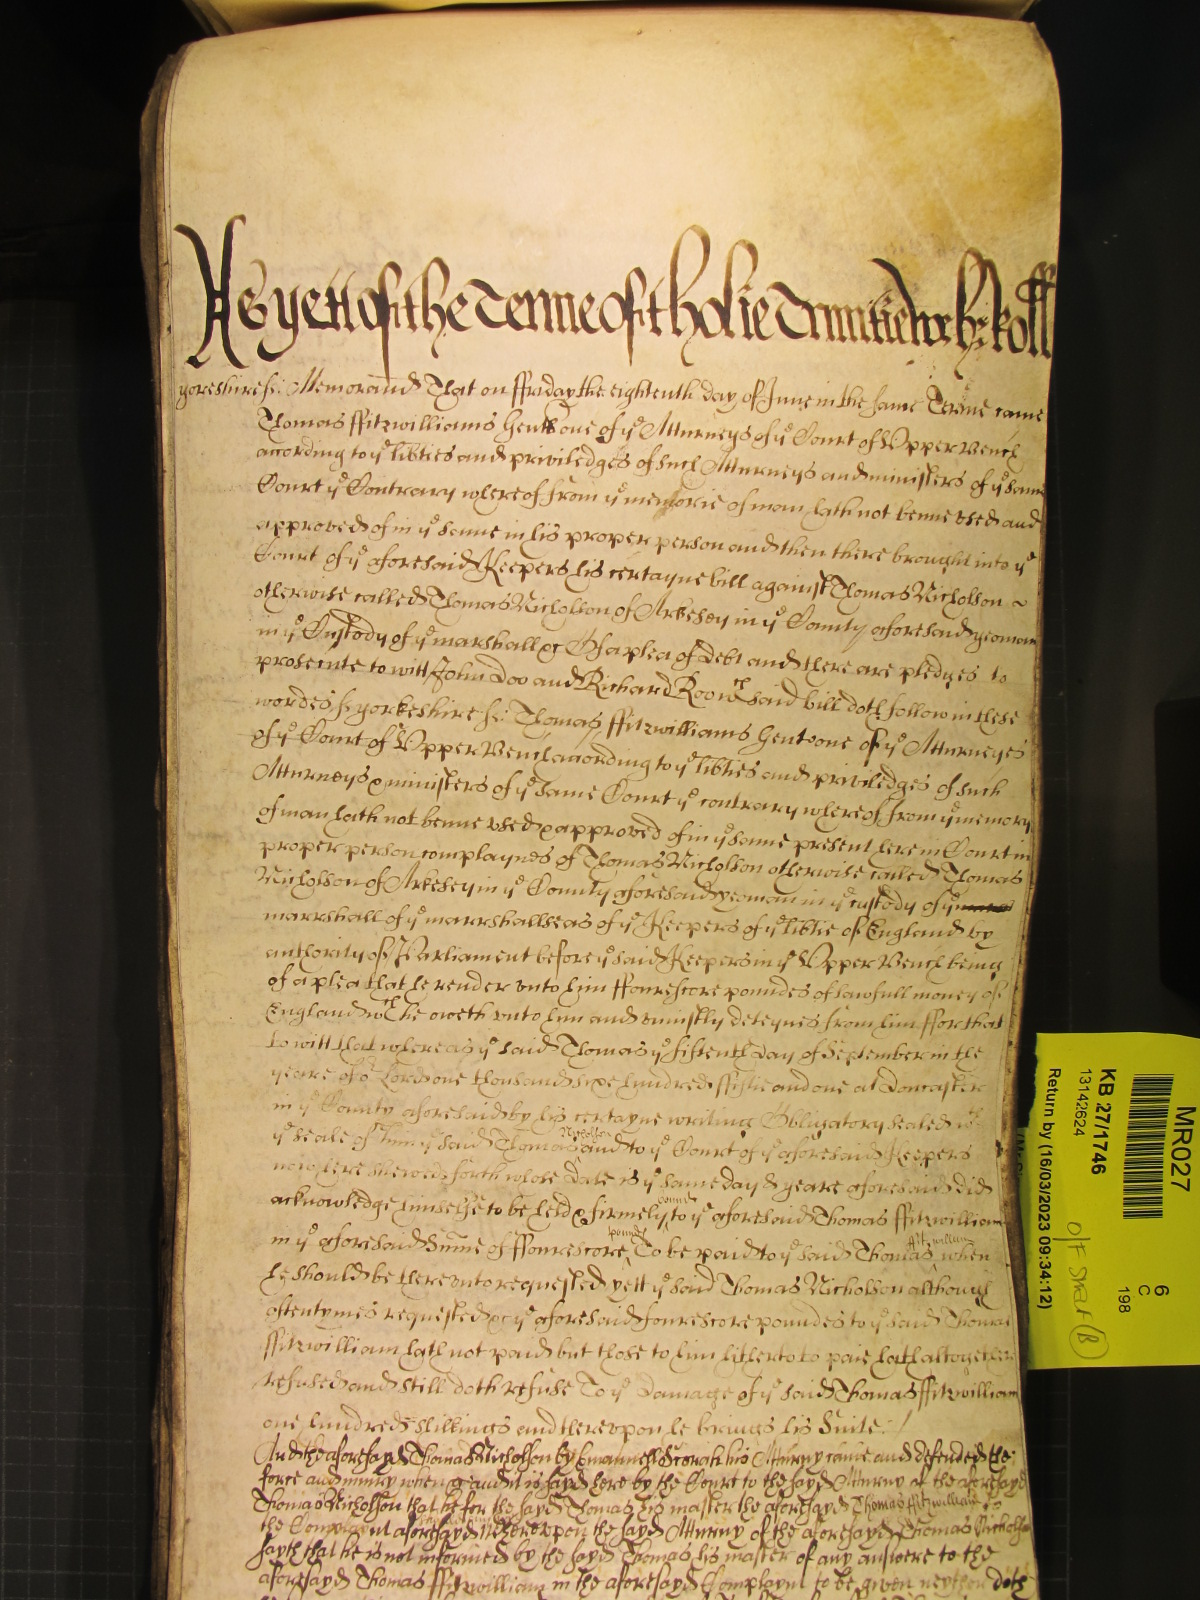 As yett of the Terme of tholie Trinitie wthe Roll
yorkeshire ss: Memorand That on ffriday the eightenth day of June in the same Terme came
Thomas ffitzwilliams Gent one of ye Atturneys of ye Court of Vpper Bench
according to ye libties and priviledges of such Atturneys and ministers of ye same
Court ye Contrary whereof from ye memorie of man hath not benne vsed and
approved of in ye same in his proper person and then there brought into ye
Court of ye aforesaid Keepers his certayne bill against Thomas Nicholson
otherwise called Thomas Nicholson of Arkesey in ye County aforesaid yeoman
in ye Custody of ye marshall &c Of a plea of debt and there are pledges to
prosecute to witt John Doo and Richard Roo wch said bill doth follow in these
wordes ss yorkeshire ss: Thomas ffitzwilliams Gent one of ye Atturneyes
of ye Court of Vpper Bench according to ye libties and priviledges of such
Atturneys & ministers of ye same Court ye contrary whereof from ye memory
of man hath not benne vsed & approved of in ye same present here in Court in
proper person complaynes of Thomas Nicholson otherwise called Thomas
Nicholson of Arkesey in ye County aforesaid yeoman in ye custody of ye
marrshall of ye marrshallseas of ye Keepers of ye libtie of England by
authority of Parliament before ye said Keepers in ye Vpper Bench being
of a plea that he render vnto him ffourescore poundes of lawfull money of
England wch he oweth vnto him and vniustly deteynes from him ffor that
to witt that whereas ye said Thomas ye fiftenth day of September in the
yeare of or Lord one thousand sixe hundred ffiftie and one at Doncaster
in ye County aforesaid by his certayne writing Obligatory sealed wth
ye seale of him ye said Thomas Nicholson and to ye Court of ye aforesaid Keepers
now here shewed forth whose date is ye same day & yeare aforesaid did
acknowledge himselfe to be held & firmely bound to ye aforesaid Thomas ffitzwilliam
in ye aforesaid Summe of ffourescore pounds To be paid to ye said Thomas ffitzwilliam when
he should be therevnto requested yett ye said Thomas Nicholson although
oftentymes requested &c ye aforesaid fourescore poundes to ye said Thomas
ffitzwilliam hath not paid but those to him hitherto to paie hath altogether
refused and still doth refuse To ye damage of ye said Thomas ffitzwilliam
one hundred shillings and therevpon he brings his Suite:
And the aforesayd Thomas Nicholson by Emanuell Scorah his Atturny came and defended the
force and iniury when &c and it is sayd here by the Court to the sayd Atturny of the aforesayd
Thomas Nicholson that he for the sayd Thomas his master the aforesayd Thomas ffitzwilliam to
the Complaynt aforesayd Wherevpon the sayd Atturny of the aforesayd Thomas Nicholson
sayth that he is not informed by the sayd Thomas his master of any answere to the
aforesayd Thomas ffitzwilliam in the aforesayd Complaynt to be given neyther doth
MR027
6
C
198
KB 27/1746
13142624
Return by (16/03/2023 09:34:12)